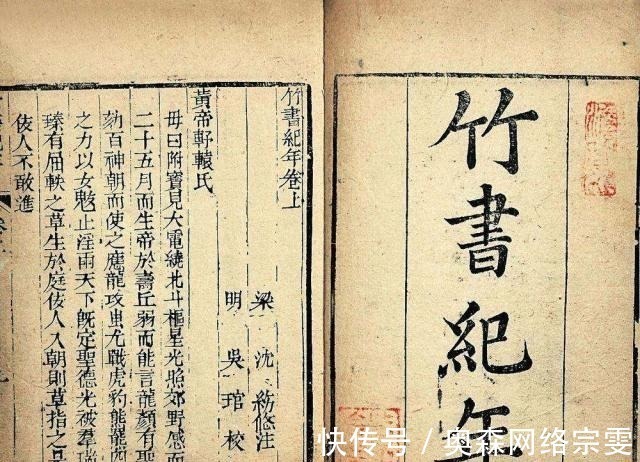 竹書紀年
竹書紀年卷上
梁 沈約附注
明 吳琯校
黃帝軒轅氏
母曰附寶見大電繞北斗樞星光照郊野感而
二十五月而生帝於壽丘弱而能言龍顏有聖
劾百神朝而使之應龍攻蚩尤戰虎豹熊羆
之力以女魃止淫雨天下既定聖德光被羣瑞
臻有屈軼之草生於庭佞人入朝則草指之
佞人不敢進
快传号/奥森网络宗雯